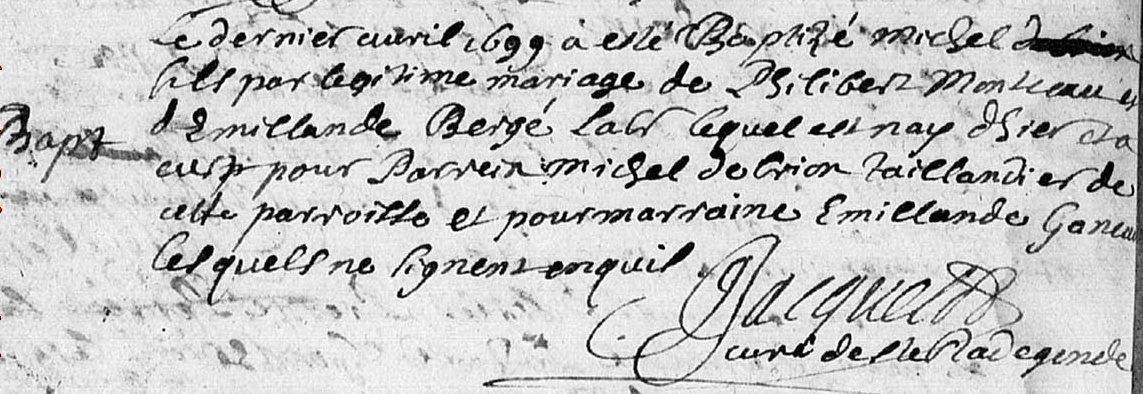 Le dernier avril 1699 a esté Baptizé michel
fils par legitime mariage de Philibert Monteau et
Bapt
d Emillande Bergé Labr lequel est nay d'hier et a
eust pour Parrein michel debrion taillandier de
cette parroisse et pour marraine Emillande Ganeau
lesquels ne signent enquis
Jacquett
curé de Ste Radegonde